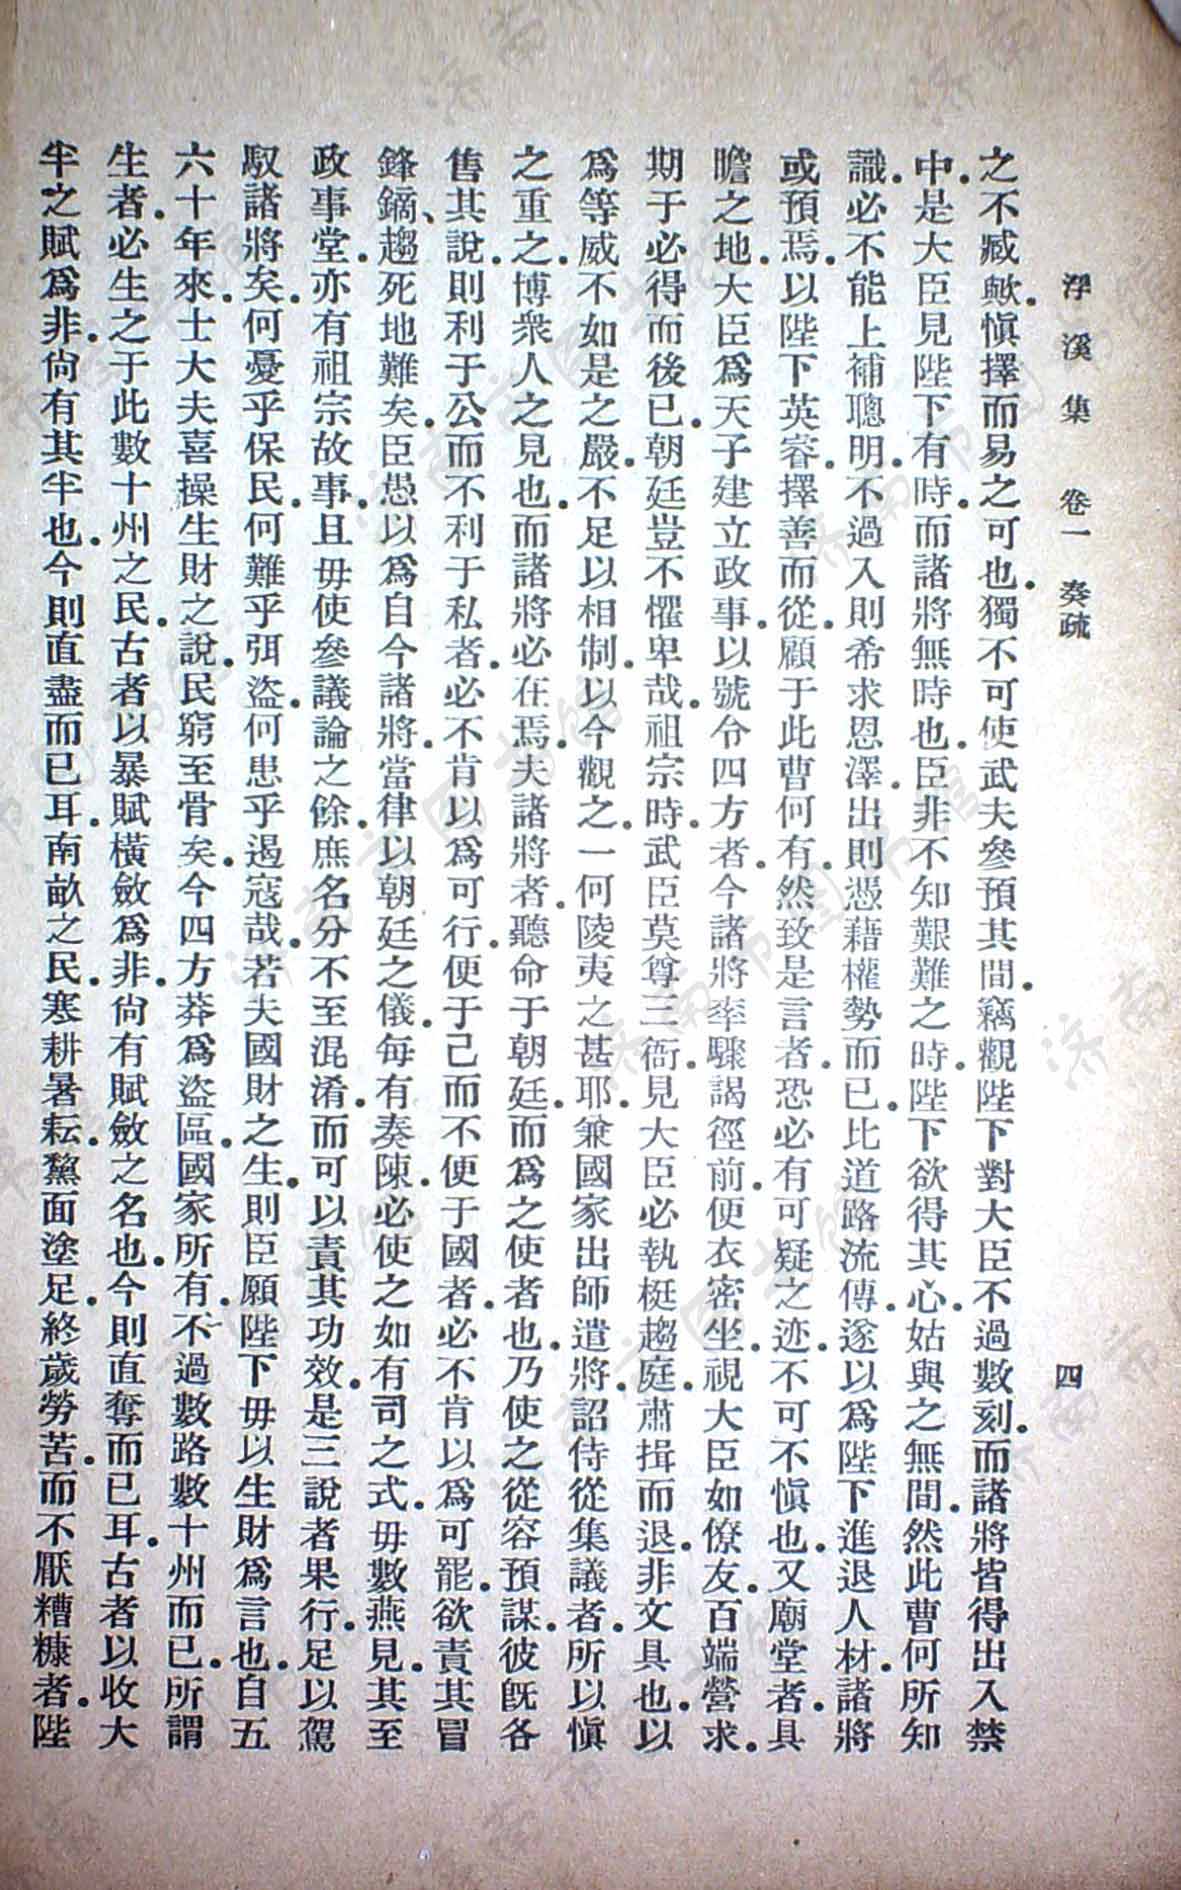 浮溪集 卷一 奏疏 四
之不臧歟。愼擇而易之可也。獨不可使武夫參預其間。竊觀陛下對大臣不過數刻。而諸將皆得出入禁
中。是大臣見陛下有時。而諸將無時也。臣非不知艱難之時。陛下欲得其心。姑與之無間。然此曹何所知
識。必不能上補聰明。不過入則希求恩澤。出則憑藉權勢而已。比道路流傳。遂以爲陛下進退人材。諸將
或預焉。以陛下英睿。擇善而從。顧于此曹何有。然致是言者。恐必有可疑之迹。不可不愼也。又廟堂者。具
瞻之地。大臣爲天子建立政事。以號令四方者。今諸將率驟謁徑前。便衣密坐。視大臣如僚友。百端營求。
期于必得而後已。朝廷豈不懼卑哉。祖宗時。武臣莫尊三衙。見大臣必執梃趨庭。肅揖而退。非文具也。以
爲等威不如是之嚴。不足以相制。以今觀之。一何陵夷之甚耶。兼國家出師遣將。詔侍從集議者。所以愼
之重之。博衆人之見也。而諸將必在焉。夫諸將者。聽命于朝廷。而爲之使者也。乃使之從容預謀。彼旣各
售其說。則利于公而不利于私者。必不肯以爲可行。便于己而不便于國者。必不肯以爲可罷。欲責其冒
鋒鏑、趨死地難矣。臣愚以爲自今諸將。當律以朝廷之儀。每有奏陳。必使之如有司之式。毋數燕見。其至
政事堂。亦有祖宗故事。且毋使參議論之餘。庶名分不至混淆。而可以責其功效。是三說者果行。足以駕
馭諸將矣。何憂乎保民。何難乎弭盜。何患乎遏寇哉。若夫國財之生。則臣願陛下毋以生財爲言也。自五
六十年來。士大夫喜操生財之說。民窮至骨矣。今四方莽爲盜區。國家所有。不過數路數十州而已。所謂
生者。必生之于此數十州之民。古者以暴賦橫斂爲非。尙有賦斂之名也。今則直奪而已耳。古者以收大
半之賦爲非。尙有其半也。今則直盡而已耳。南畝之民。寒耕暑耘。黧面塗足。終歲勞苦。而不厭糟糠者。陛